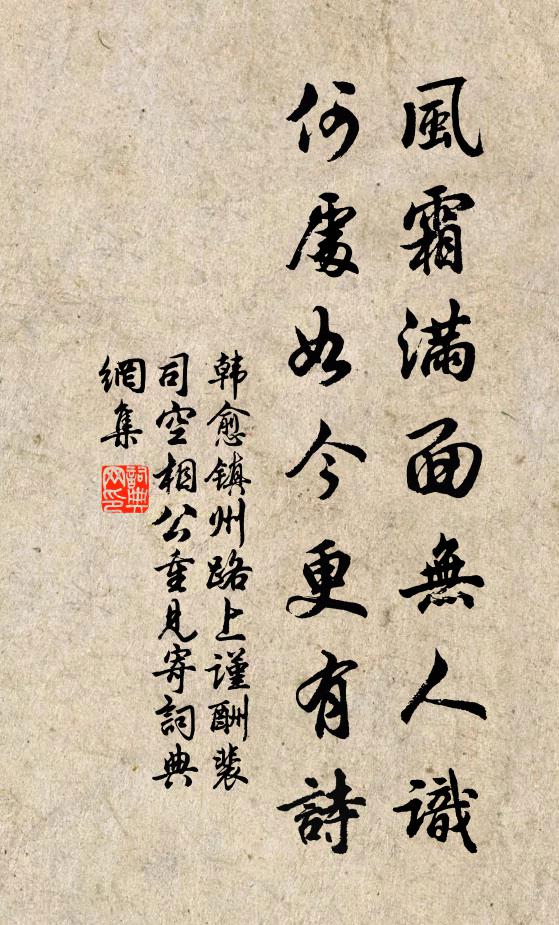 風霜滿面無人識
何處如今更有詩
韩愈镇州路上謹酬裴
司空相公重見寄詞典
網集
詞典
网印